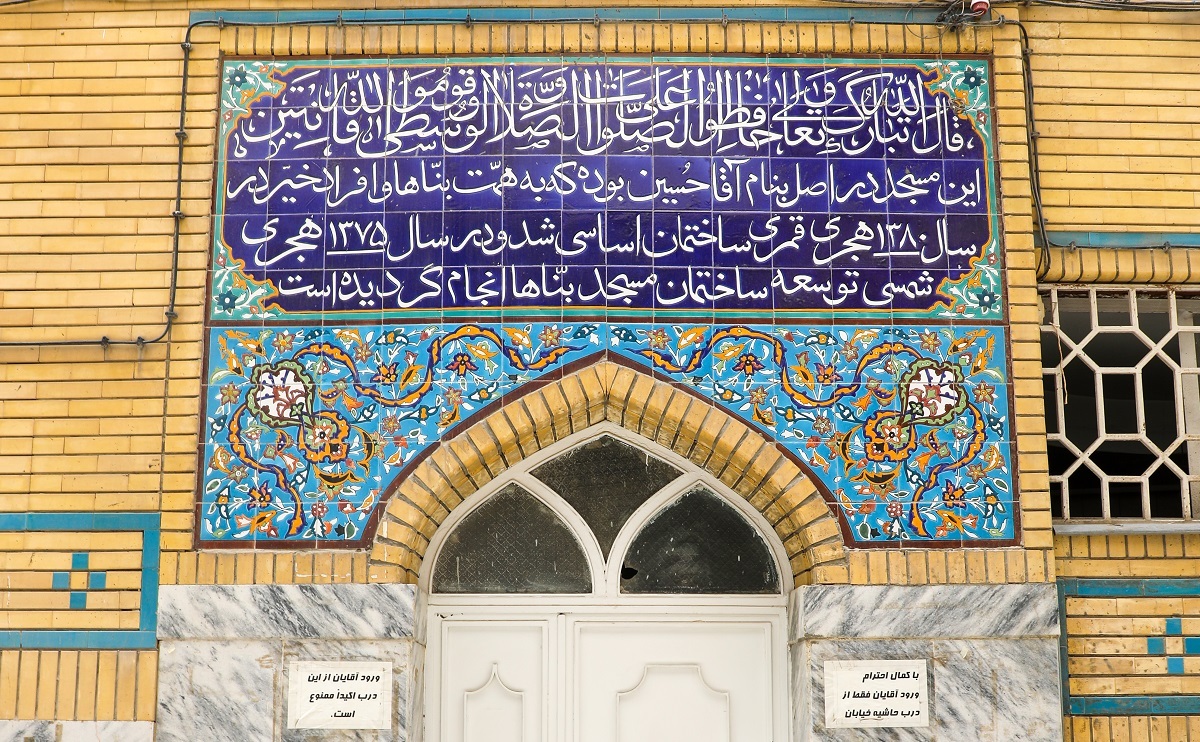 قال الله تبارک و تعالی حافظوا علی الصلوات و الصلاة الوسطی و قوموا لله قانتین
این مسجد در اصل بنام آقا حسین بوده که به همّت بنّاها و افراد خیّر در
سال ۱۳۸۰ هجری قمری ساختمان اساسی شد و در سال ۱۳۷۵ هجری
شمسی توسعه ساختمان مسجد بنّاها انجام گردیده است
با کمال احترام
ورود آقایان فقط از
درب حاشیه خیابان
ورود آقایان از این
درب اکیداً ممنوع
است.